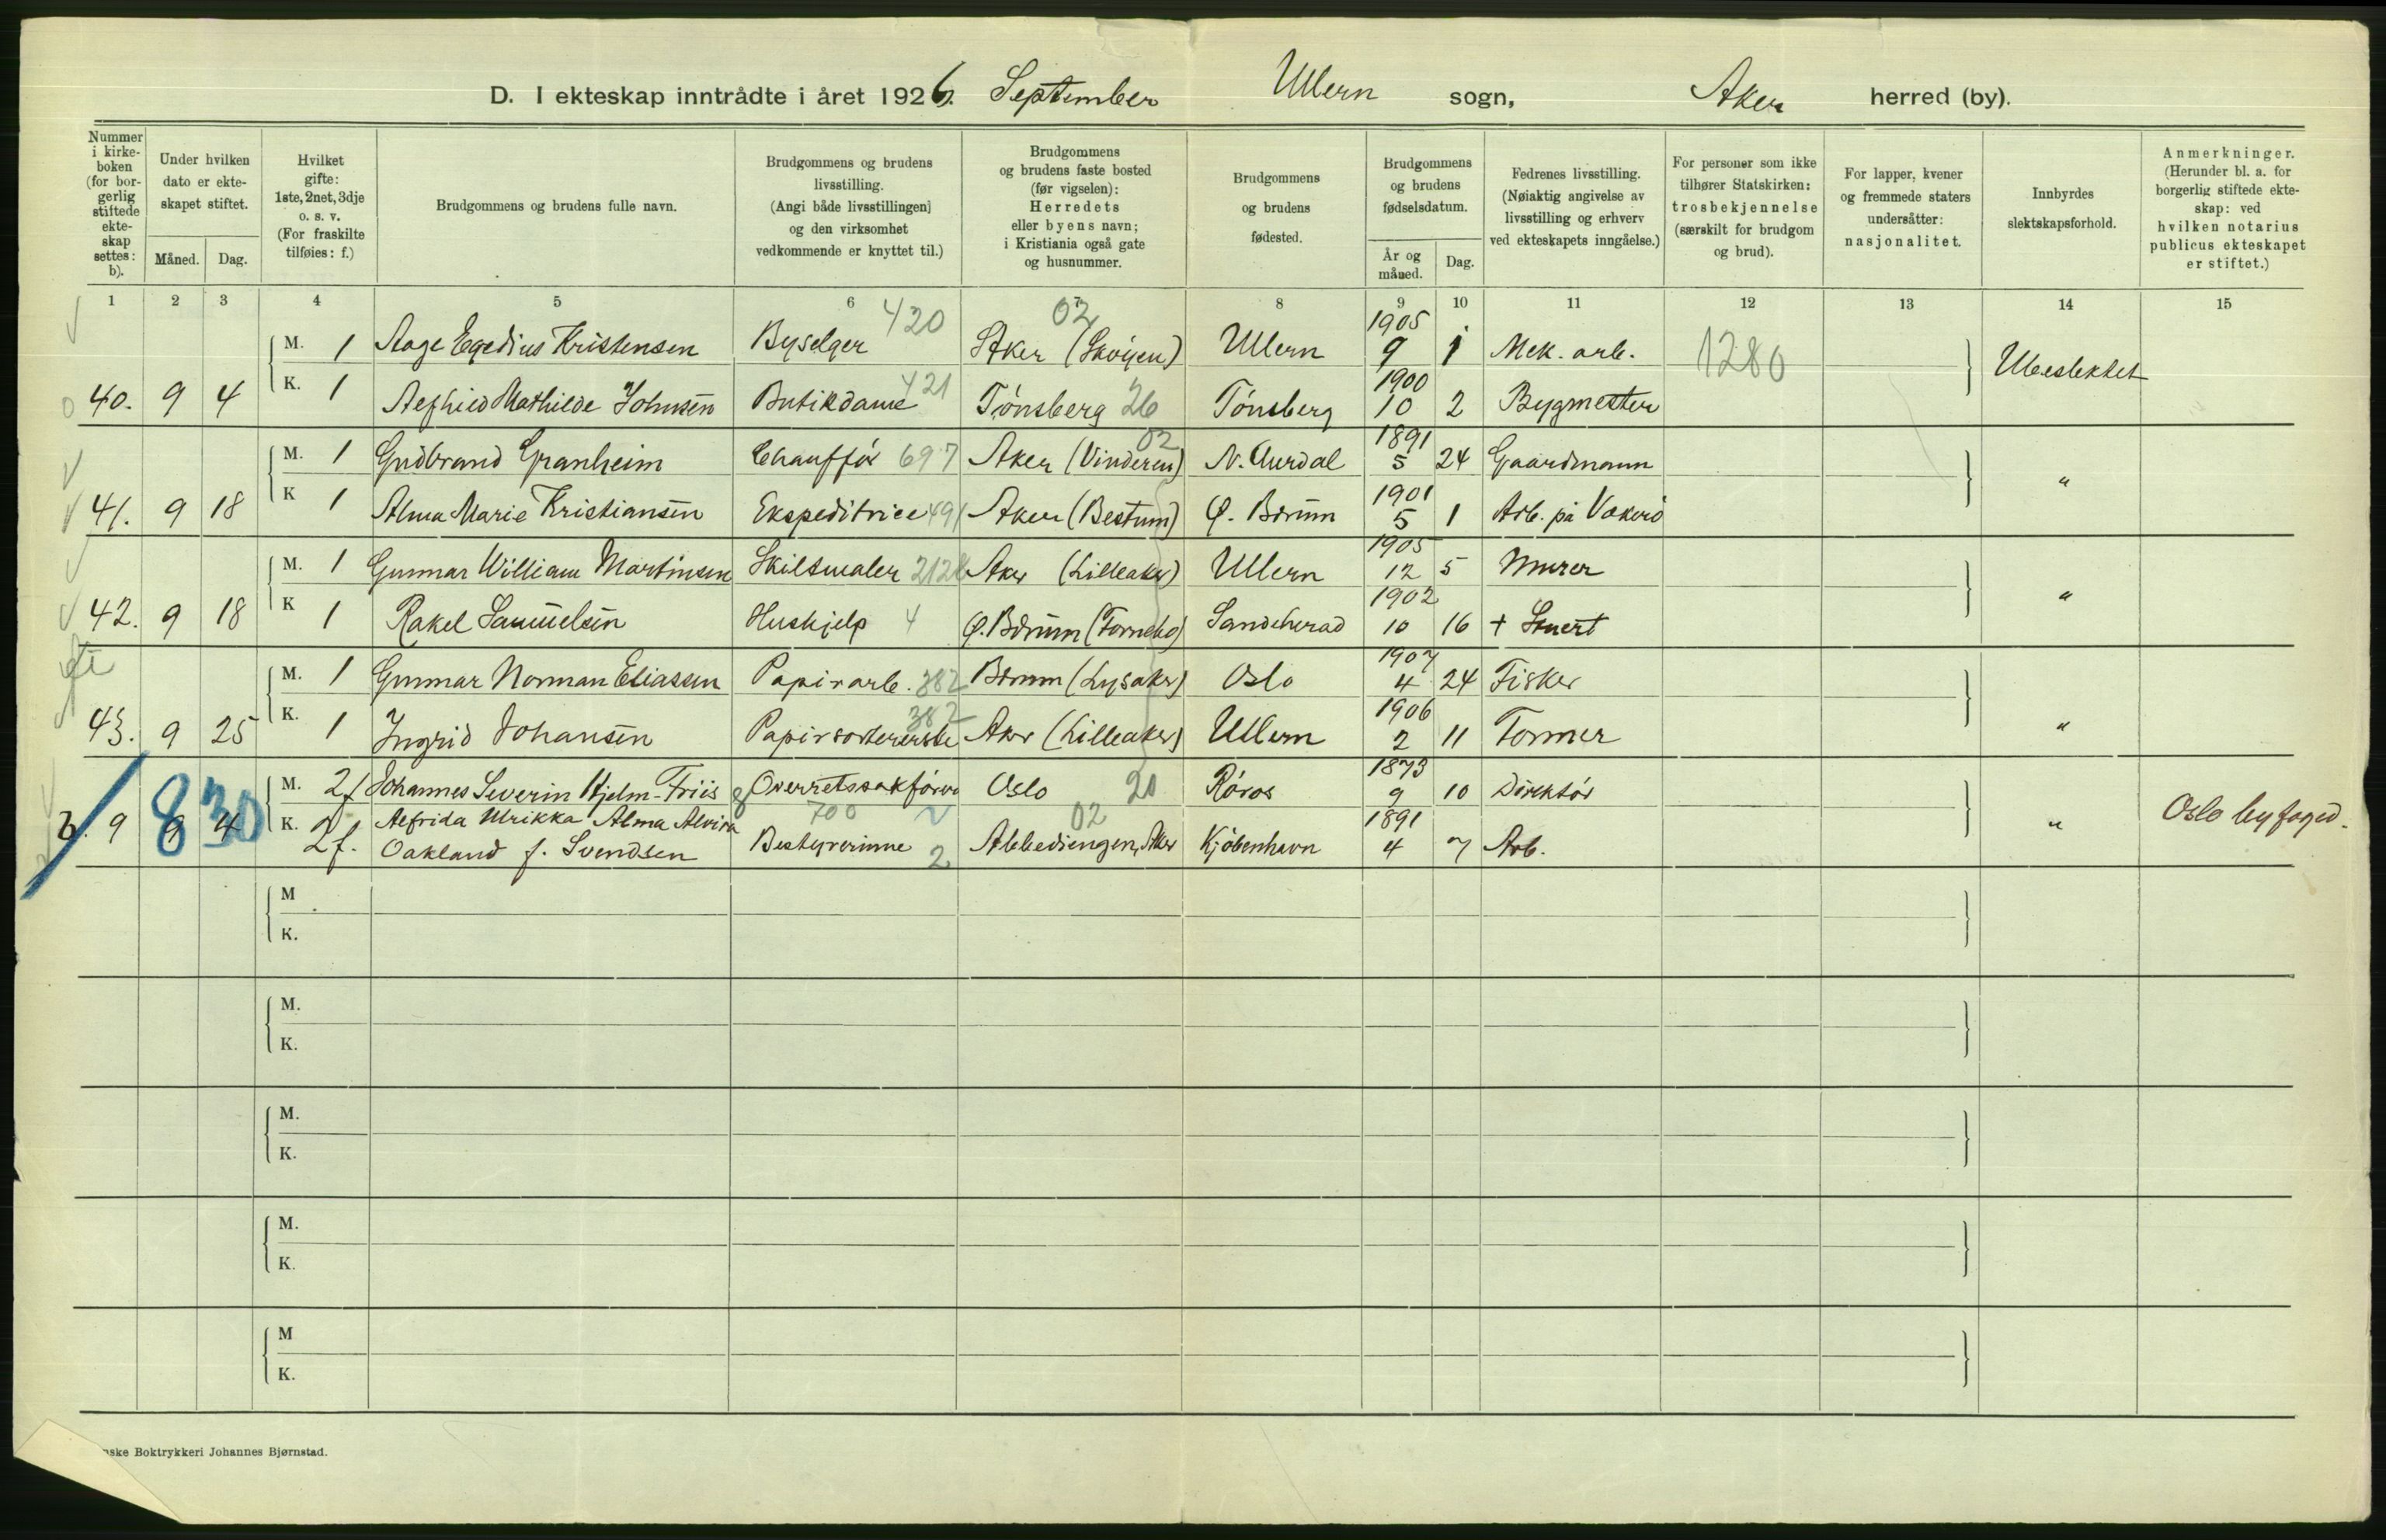 D. I ekteskap inntrådte i året 1926. September Ullern sogn, Aker herred (by).
Nummer i kirke-boken (for bor-gerlig stiftede ekte-skap settes: b).
Under hvilken dato er ekte-skapet stiftet.
Måned. Dag.
Hvilket gifte: 1ste, 2net, 3dje o. s. v. (For fraskilte tilføies: f.)
Brudgommens og brudens fulle navn.
Brudgommens og brudens livsstilling. (Angi både livsstillingen og den virksomhet vedkommende er knyttet til.)
Brudgommens og brudens faste bosted (før vigselen): Herredets eller byens navn; i Kristiania også gate og husnummer.
Brudgommens og brudens fødested.
Brudgommens og brudens fødselsdatum.
År og måned. Dag.
Fedrenes livsstilling. (Nøiaktig angivelse av livsstilling og erhverv ved ekteskapets inngåelse.)
For personer som ikke tilhører Statskirken: trosbekjennelse (særskilt for brudgom og brud).
For lapper, kvener og fremmede staters undersåtter: nasjonalitet.
Innbyrdes slektskapsforhold.
Anmerkninger. (Herunder bl. a. for borgerlig stiftede ekte-skap: ved hvilken notarius publicus ekteskapet er stiftet.)
1 2 3 4 5 6 7 8 9 10 11 12 13 14 15
M. 1 Aage Egedius Kristensen Byselger 420 Aker (Skøyen) 02 Ullern 1905 9 1 Mek. arb. 1280 Ubeslektet
40. 9 4 K. 1 Mathilde Johnsen Butikdame 421 Tønsberg 26 Tønsberg 1900 10 2 Bygmester
M. 1 Gudbrand Granheim Chauffør 697 Aker (Vinderen) 02 N. Aurdal 1891 5 24 Gaardmann "
41. 9 18 K 1 Alma Marie Kristiansen Ekspeditrice 491 Aker (Bestum) Ø. Bærum 1901 5 1 Arb. på Vækerø
M. 1 Gunnar William Martinsen Skiltmaler 212 Aker (Lilleaker) Ullern 1905 12 5 Murer "
42. 9 18 K 1 Rakel Samuelsen Hushjelp 4 Ø. Bærum (Fornebo) Sandeherad 1902 10 16 +
M. 1 Gunnar Norman Eliassen Papirarb. 382 Bærum (Lysaker) Oslo 1907 4 24 Fisker "
43. 9 25 K. 1 Ingrid Johansen Papirsorterерske 382 Aker (Lilleaker) Ullern 1906 2 11 Former
M. 2f Johannes Severin Hjelm-Friis Overretssakfører 8 Oslo 20 Røros 1873 9 10 Direktør
b. 9 9 4 830 K. 2f. Alfrida Ulrikka Alma Alvira 700 02 1891 " Oslo byfoged.
Oakland f. Svendsen Bestyrerinne 2 Abbediengen, Aker Kjøbenhavn 4 7 Arb.
M
K.
M.
K.
M.
K.
M.
K.
M
K.
nske Boktrykkeri Johannes Bjørnstad.